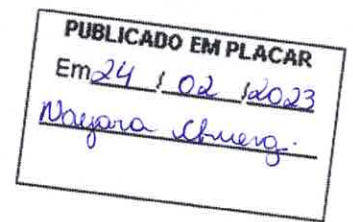 PUBLICADO EM PLACAR
Em 24 / 02 / 2023
Nayara